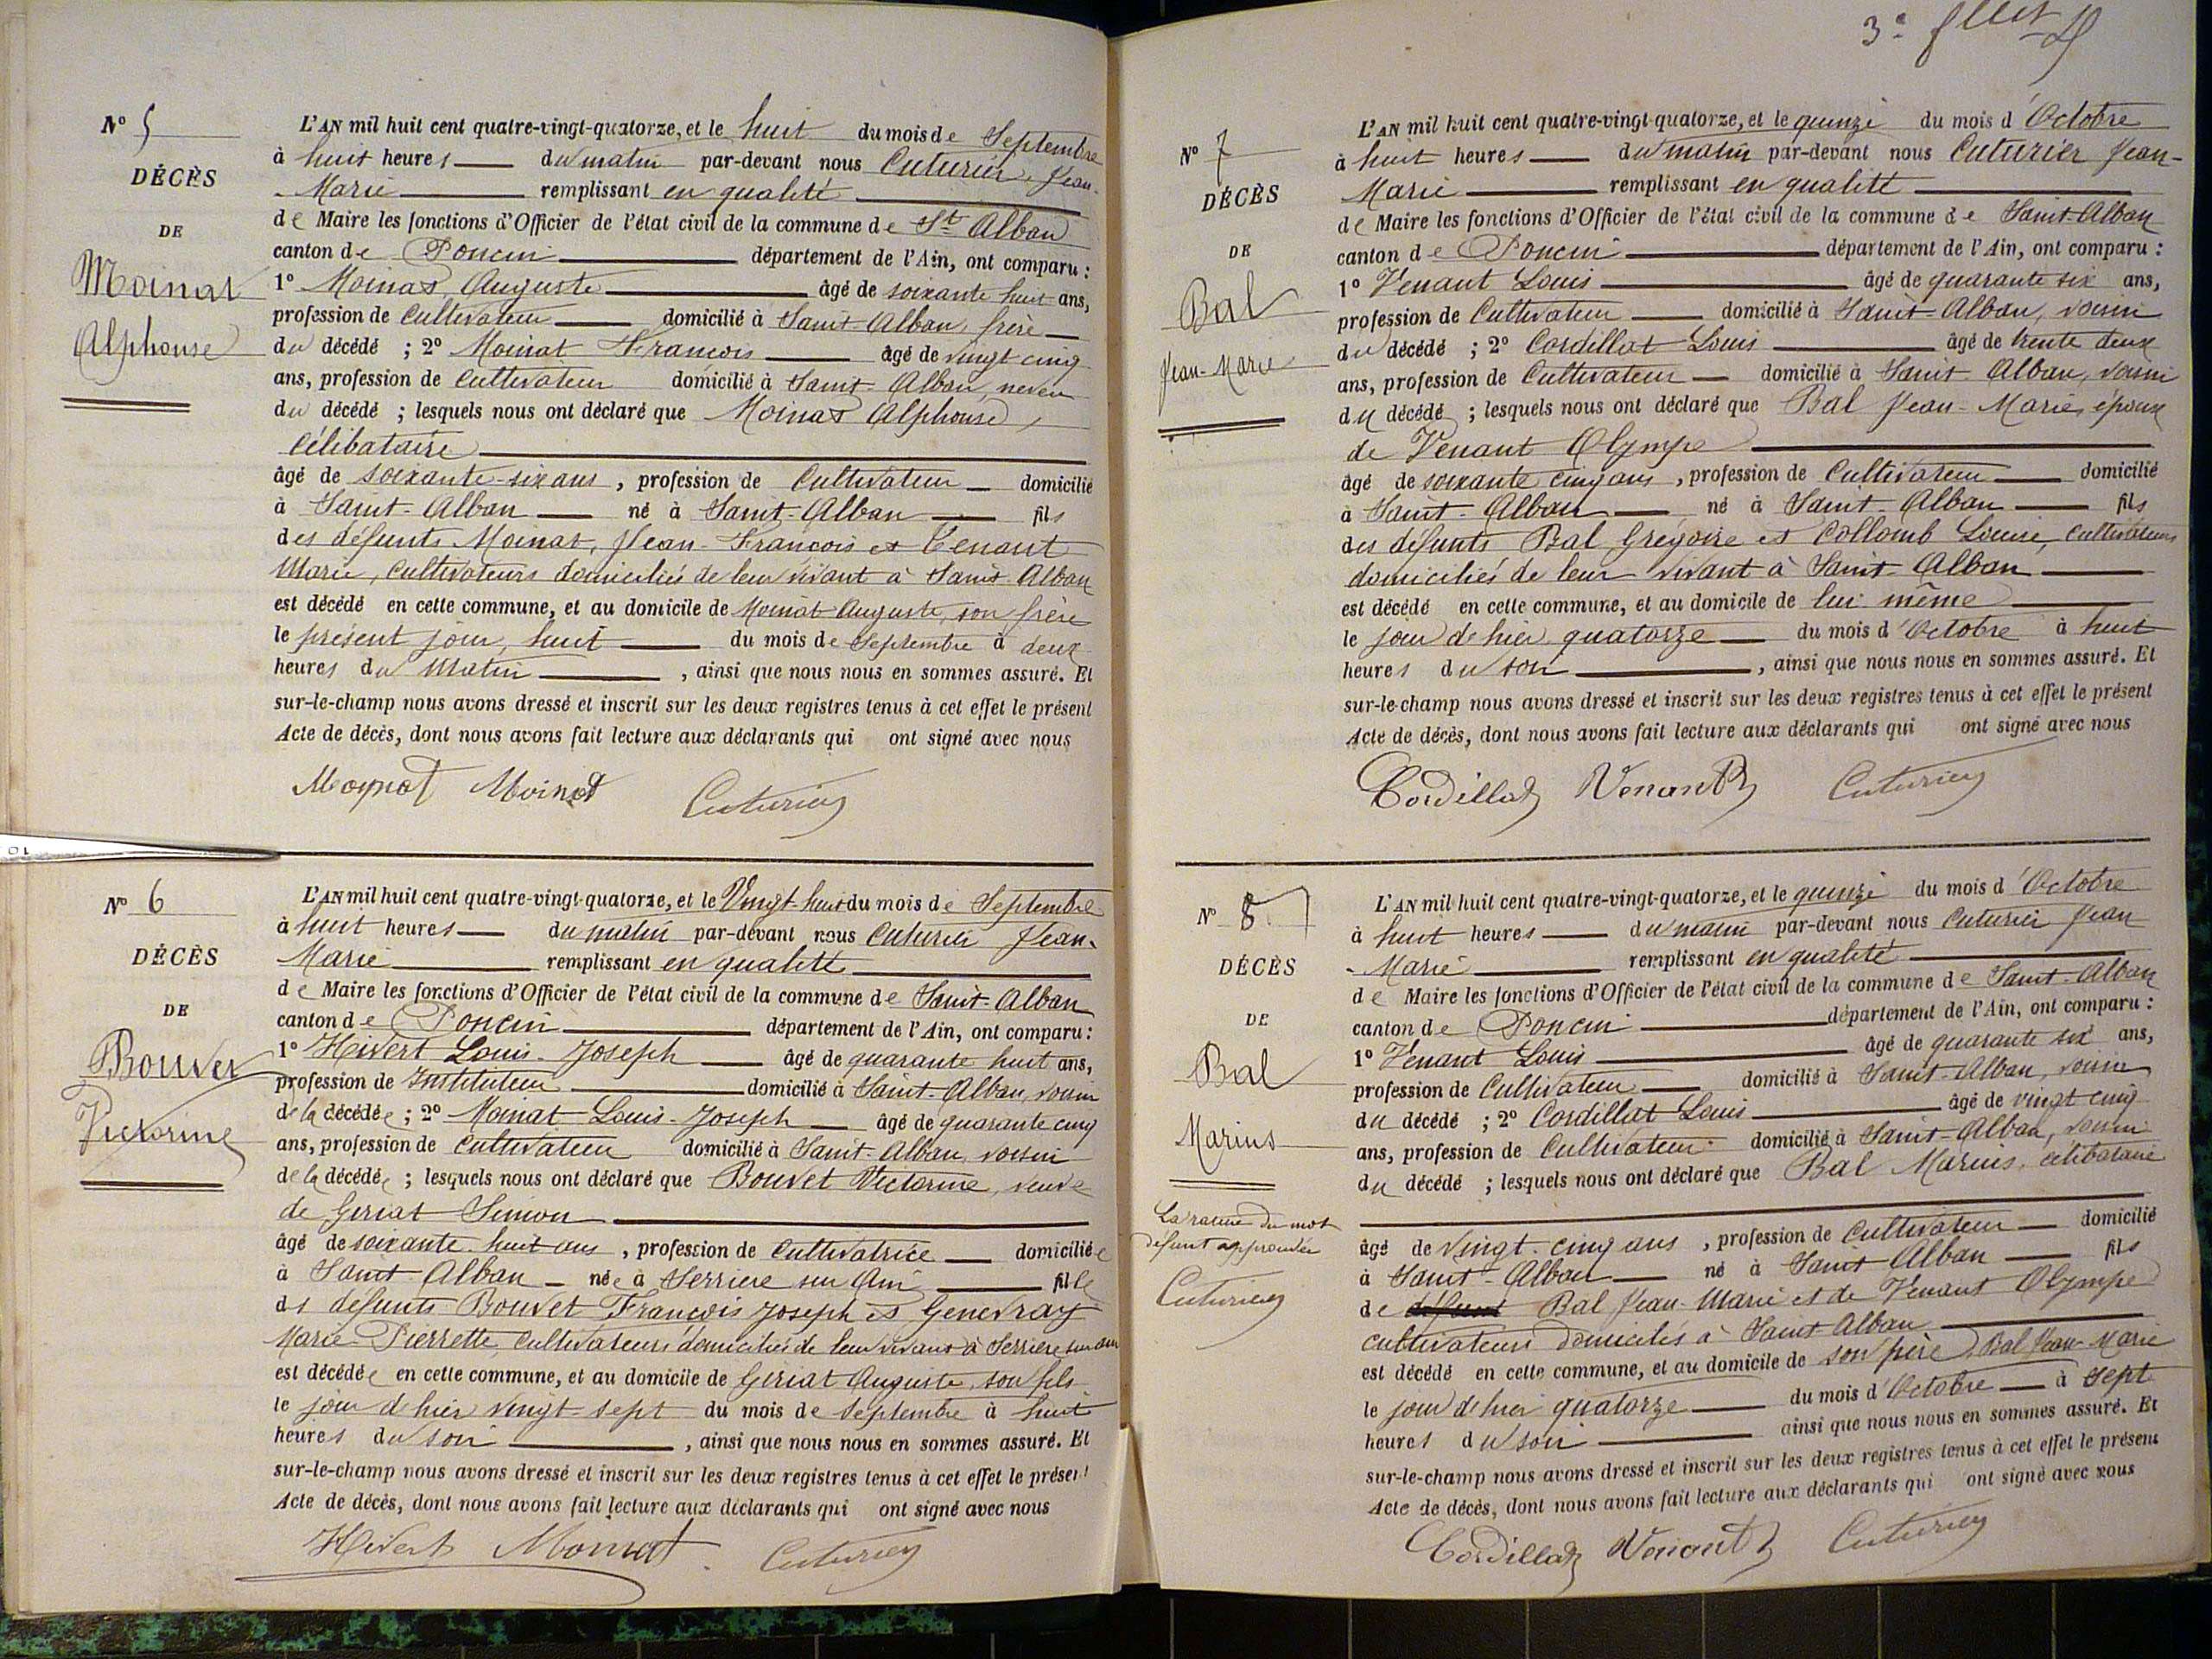 N° 5
DÉCÈS
DE
Moinat
Alphonse
L'AN mil huit cent quatre-vingt-quatorze, et le huit du mois de Septembre
à huit heures du matin par-devant nous Cuturier, Jean-
Marie remplissant en qualité
de Maire les fonctions d'Officier de l'état civil de la commune de St Alban
canton de Poncin département de l'Ain, ont comparu :
1° Moinat, Auguste âgé de soixante huit ans,
profession de Cultivateur domicilié à Saint-Alban, frère
du décédé ; 2° Moinat François âgé de vingt cinq
ans, profession de Cultivateur domicilié à Saint-Alban, neveu
du décédé ; lesquels nous ont déclaré que Moinat Alphonse,
Célibataire
âgé de soixante-six ans, profession de Cultivateur domicilié
à Saint-Alban né à Saint-Alban fils
des défunts Moinat, Jean-François et Venant
Marie, Cultivateurs domiciliés de leur vivant à Saint-Alban
est décédé en cette commune, et au domicile de Moinat Auguste, son frère
le présent jour, huit du mois de Septembre à deux
heures du matin, ainsi que nous nous en sommes assuré. Et
sur-le-champ nous avons dressé et inscrit sur les deux registres tenus à cet effet le présent
Acte de décès, dont nous avons fait lecture aux déclarants qui ont signé avec nous
Moynat Moinat Cuturier
N° 6
DÉCÈS
DE
Bouvet
Victorine
L'AN mil huit cent quatre-vingt-quatorze, et le Vingt-huit du mois de Septembre
à huit heures du matin par-devant nous Cuturier Jean-
Marie remplissant en qualité
de Maire les fonctions d'Officier de l'état civil de la commune de Saint-Alban
canton de Poncin département de l'Ain, ont comparu :
1° Hivert Louis-Joseph âgé de quarante huit ans,
profession de Instituteur domicilié à Saint-Alban, voisin
de la décédée ; 2° Moinat Louis-Joseph âgé de quarante cinq
ans, profession de Cultivateur domicilié à Saint-Alban, voisin
de la décédée ; lesquels nous ont déclaré que Bouvet Victorine, veuve
de Geriat Simon
âgé de soixante-huit ans, profession de Cultivatrice domiciliée
à Saint-Alban née à Serriere sur Ain fille
ds défunts Bouvet François Joseph et Genevray
Marie-Pierrette, Cultivateurs domiciliés de leur vivant à Serriere sur ain
est décédée en cette commune, et au domicile de Geriat Auguste, son fils
le jour d'hier vingt-sept du mois de Septembre à huit
heures du soir, ainsi que nous nous en sommes assuré. Et
sur-le-champ nous avons dressé et inscrit sur les deux registres tenus à cet effet le présent
Acte de décès, dont nous avons fait lecture aux déclarants qui ont signé avec nous
Hivert Moinat Cuturier
3e
N° 7
DÉCÈS
DE
Bal
Jean-Marie
L'AN mil huit cent quatre-vingt-quatorze, et le quinze du mois d'Octobre
à huit heures du matin par-devant nous Cuturier Jean-
Marie remplissant en qualité
de Maire les fonctions d'Officier de l'état civil de la commune de Saint-Alban
canton de Poncin département de l'Ain, ont comparu :
1° Venant Louis âgé de quarante six ans,
profession de Cultivateur domicilié à Saint-Alban, voisin
du décédé ; 2° Cordillat Louis âgé de trente deux
ans, profession de Cultivateur domicilié à Saint-Alban, voisin
du décédé ; lesquels nous ont déclaré que Bal Jean-Marie, époux
de Venant Olympe
âgé de soixante cinq ans, profession de Cultivateur domicilié
à Saint-Alban né à Saint-Alban fils
des défunts Bal Grégoire et Collomb Louise, Cultivateurs
domiciliés de leur vivant à Saint-Alban
est décédé en cette commune, et au domicile de lui même
le jour d'hier, quatorze du mois d'Octobre à huit
heures du soir, ainsi que nous nous en sommes assuré. Et
sur-le-champ nous avons dressé et inscrit sur les deux registres tenus à cet effet le présent
Acte de décès, dont nous avons fait lecture aux déclarants qui ont signé avec nous
Cordillat Venant Cuturier
N° 8
DÉCÈS
DE
Bal
Marius
La rature du mot
défunt approuvée
Cuturier
L'AN mil huit cent quatre-vingt-quatorze, et le quinze du mois d'Octobre
à huit heures du matin par-devant nous Cuturier Jean
-Marie remplissant en qualité
de Maire les fonctions d'Officier de l'état civil de la commune de Saint-Alban
canton de Poncin département de l'Ain, ont comparu :
1° Venant Louis âgé de quarante six ans,
profession de Cultivateur domicilié à Saint-Alban, voisin
du décédé ; 2° Cordillat Louis âgé de vingt cinq
ans, profession de Cultivateur domicilié à Saint-Alban, voisin
du décédé ; lesquels nous ont déclaré que Bal Marius, célibataire
âgé de vingt-cinq ans, profession de Cultivateur domicilié
à Saint-Alban né à Saint Alban fils
de défunt Bal Jean-Marie et de Venant Olympe
cultivateurs domiciliés à Saint Alban
est décédé en cette commune, et au domicile de son père, Bal Jean-Marie
le jour d'hier quatorze du mois d'Octobre à sept
heures du soir ainsi que nous nous en sommes assuré. Et
sur-le-champ nous avons dressé et inscrit sur les deux registres tenus à cet effet le présent
Acte de décès, dont nous avons fait lecture aux déclarants qui ont signé avec nous
Cordillat Venant Cuturier